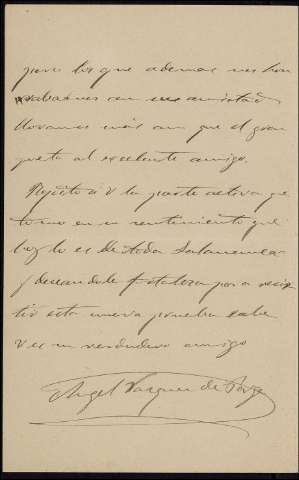 pero los que ademas nos hon
rabamos con su amistad
lloramos más aun que el gran
poeta al excelente amigo.
Repito á V la parte activa que
tomo en su sentimiento que
hoy lo es de toda Salamanca
y deseandole fortaleza para resis
tir esta nueva prueba sabe
V es su verdadero amigo
Angel Vazquez de Parga